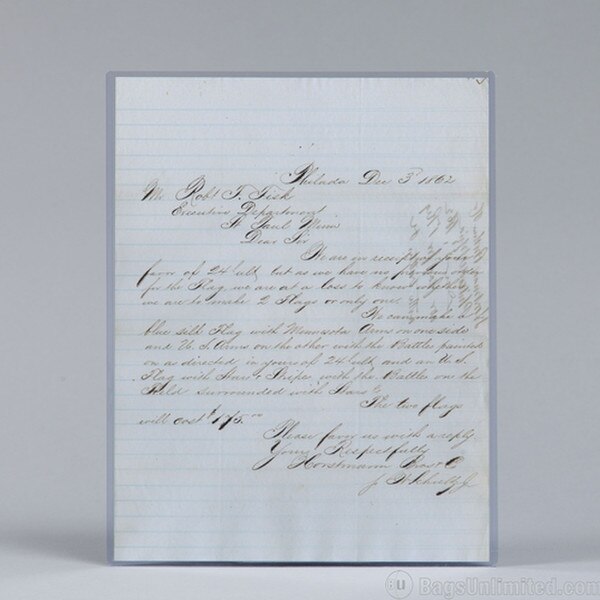 Philada Dec 3d 1862
Mr Robt T. Fisk
Executive Department
St Paul Minn
Dear Sir
We are in receipt of your
favor of 24 ulto, but as we have no previous order
for the Flag, we are at a loss to know whether
we are to make 2 Flags or only one.
We can make a
blue silk Flag with Minnesota Arms on one side
and U.S. Arms on the other with the Battles painted
on as directed in yours of 24 ulto and an U.S.
Flag with Stars & Stripes with the Battles on the
Field surrounded with Stars
The two flags
will cost $175.00
Please favor us with a reply
Yours Respectfully
Horstmann Bros & Co
BU BagsUnlimited.com